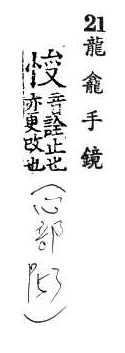 21 龍龕手鏡
音詮止也
亦更改也
(心部 )